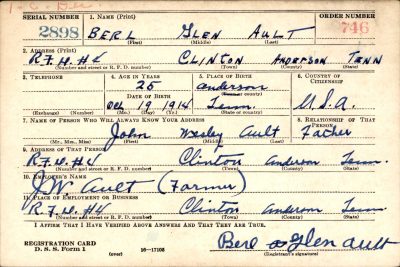 SERIAL NUMBER 1. NAME (Print) ORDER NUMBER
2898 BERL GLEN AULT 746
(First) (Middle) (Last)
2. ADDRESS (Print)
R.F.D. #4 CLINTON ANDERSON TENN
(Number and street or R. F. D. number) (Town) (County) (State)
3. TELEPHONE 4. AGE IN YEARS 5. PLACE OF BIRTH 6. COUNTRY OF CITIZENSHIP
25 Anderson
DATE OF BIRTH (Town or county)
Oct 19 1914 Tenn. U.S.A.
(Exchange) (Number) (Mo.) (Day) (Yr.) (State or country)
7. NAME OF PERSON WHO WILL ALWAYS KNOW YOUR ADDRESS 8. RELATIONSHIP OF THAT PERSON
John Wesley Ault Father
(Mr., Mrs., Miss) (First) (Middle) (Last)
9. ADDRESS OF THAT PERSON
R.F.D. #4 Clinton Anderson Tenn.
(Number and street or R. F. D. number) (Town) (County) (State)
10. EMPLOYER'S NAME
J.W. Ault (Farmer)
11. PLACE OF EMPLOYMENT OR BUSINESS
R.F.D. #4 Clinton Anderson Tenn.
(Number and street or R. F. D. number) (Town) (County) (State)
I AFFIRM THAT I HAVE VERIFIED ABOVE ANSWERS AND THAT THEY ARE TRUE.
REGISTRATION CARD
D. S. S. Form 1 (over) 16—17105
Berl Glen Ault
(Registrant's signature)